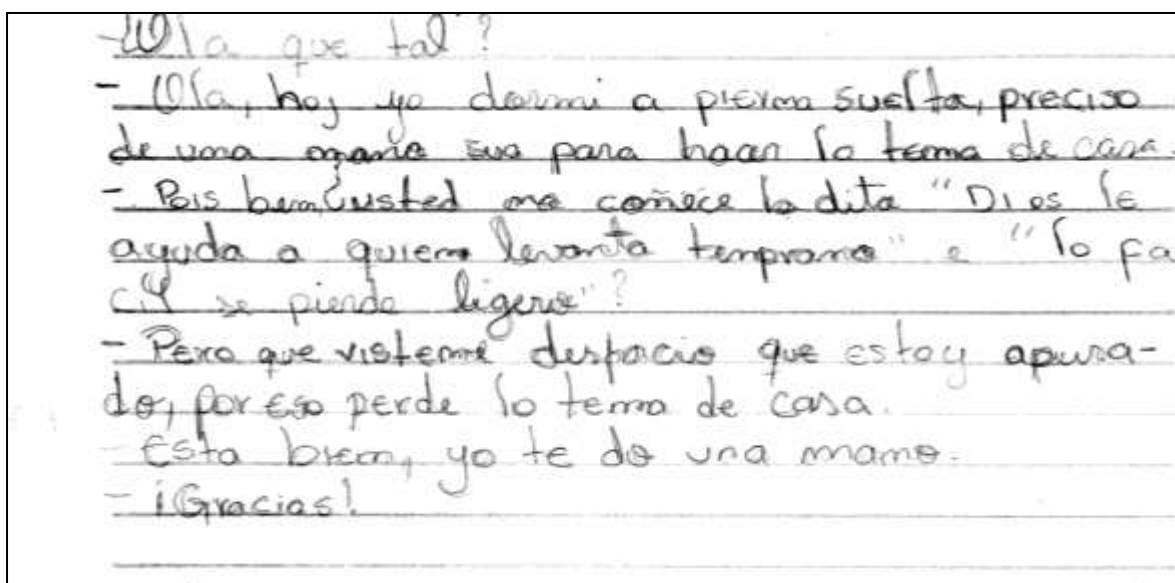 -Ola que tal?
- Ola, hoj yo dormi a pierna suelta, preciso
de uma mano sua para hacer lo tema de casa.
- Pois bem, ¿usted no coñece lo dita "Dios le
ayuda a quiem levanta temprano" e "lo fa
cil se pierde ligero"?
- Pero que visteme despacio que estoy apura-
do, por eso perde lo tema de casa.
- Esta biem, yo te do una mano.
- ¡Gracias!